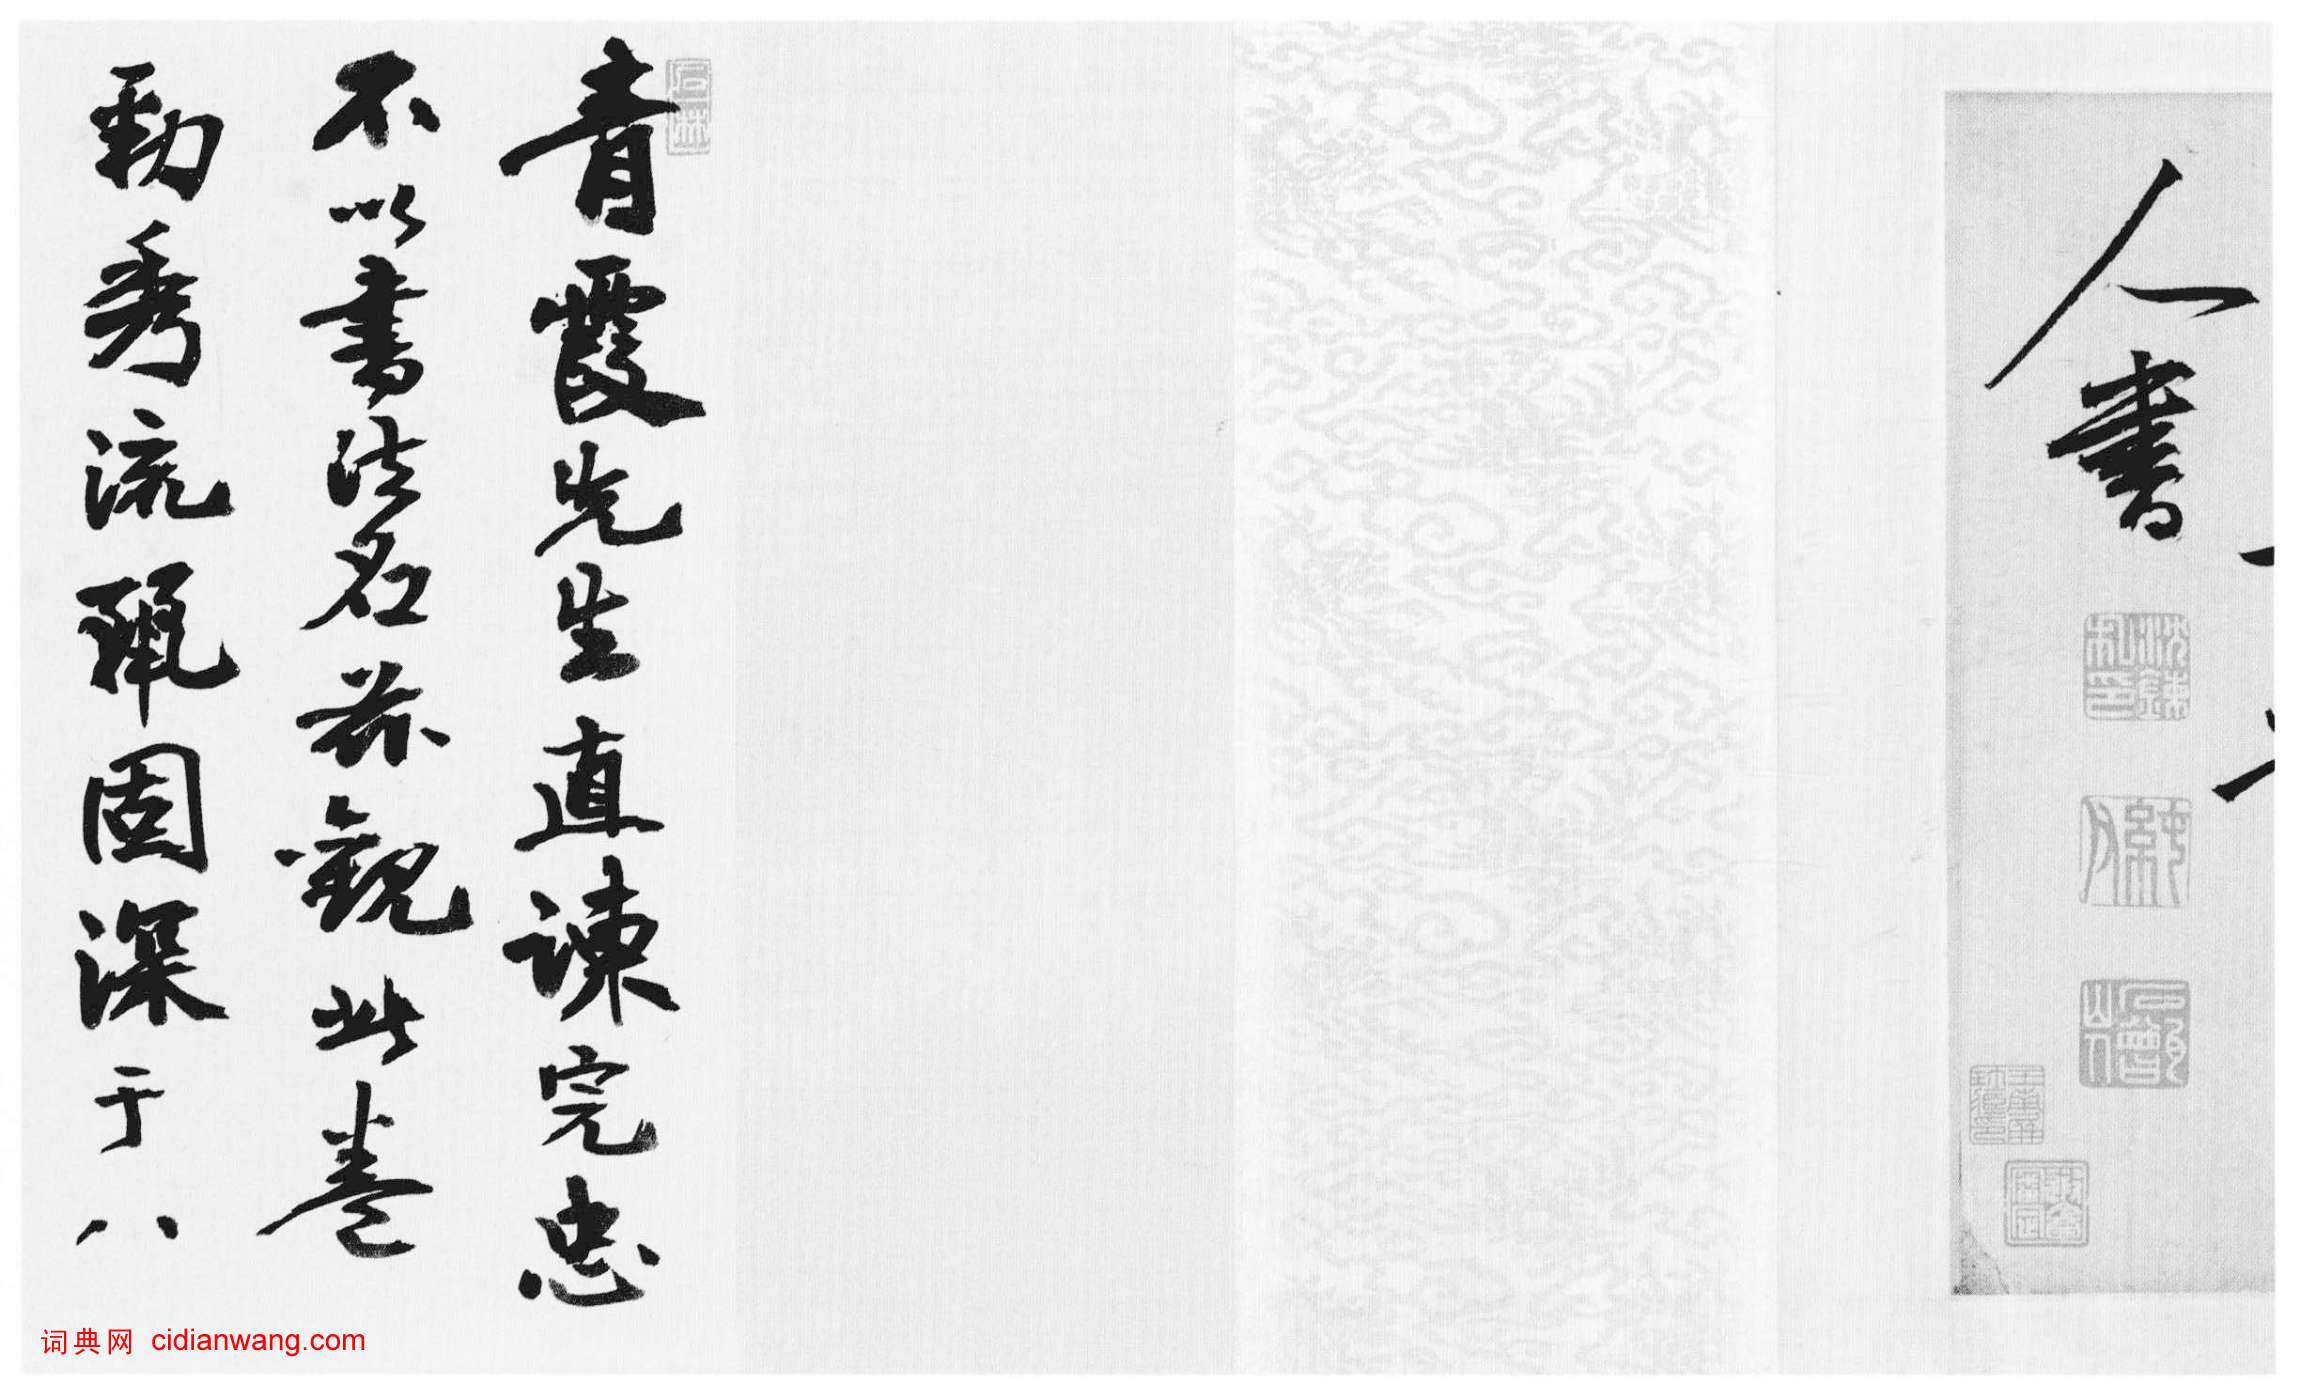 人書
沈鍊私印
純父
青霞先生直諫完忠
不以書法名茲觀此卷
勁秀流麗固深于八
词典网 cidianwang.com